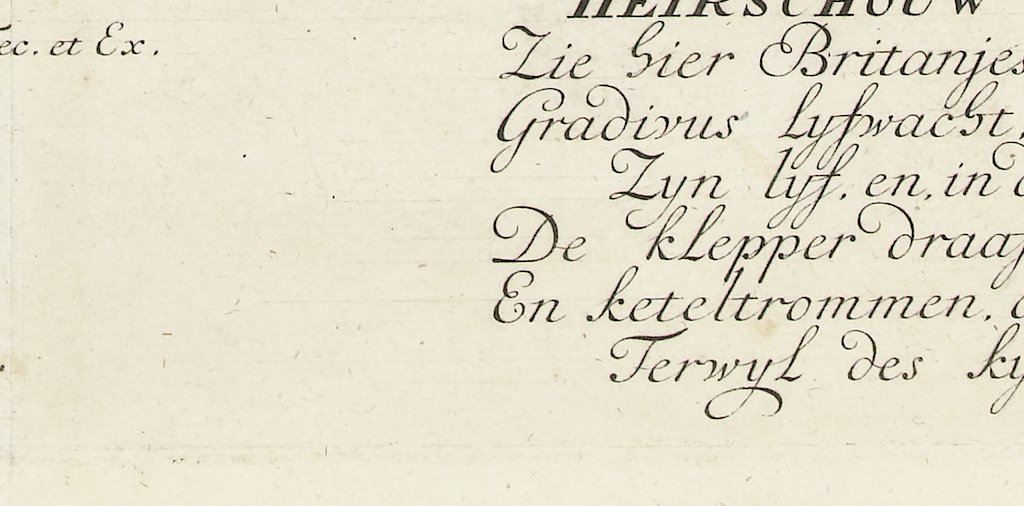 HEIRSCHOUW
ec. et Ex.
Zie hier Britanjes
Gradivus lyfwacht,
Zyn lyf, en, in
De klepper draa
En keteltrommen,
Terwyl des ky